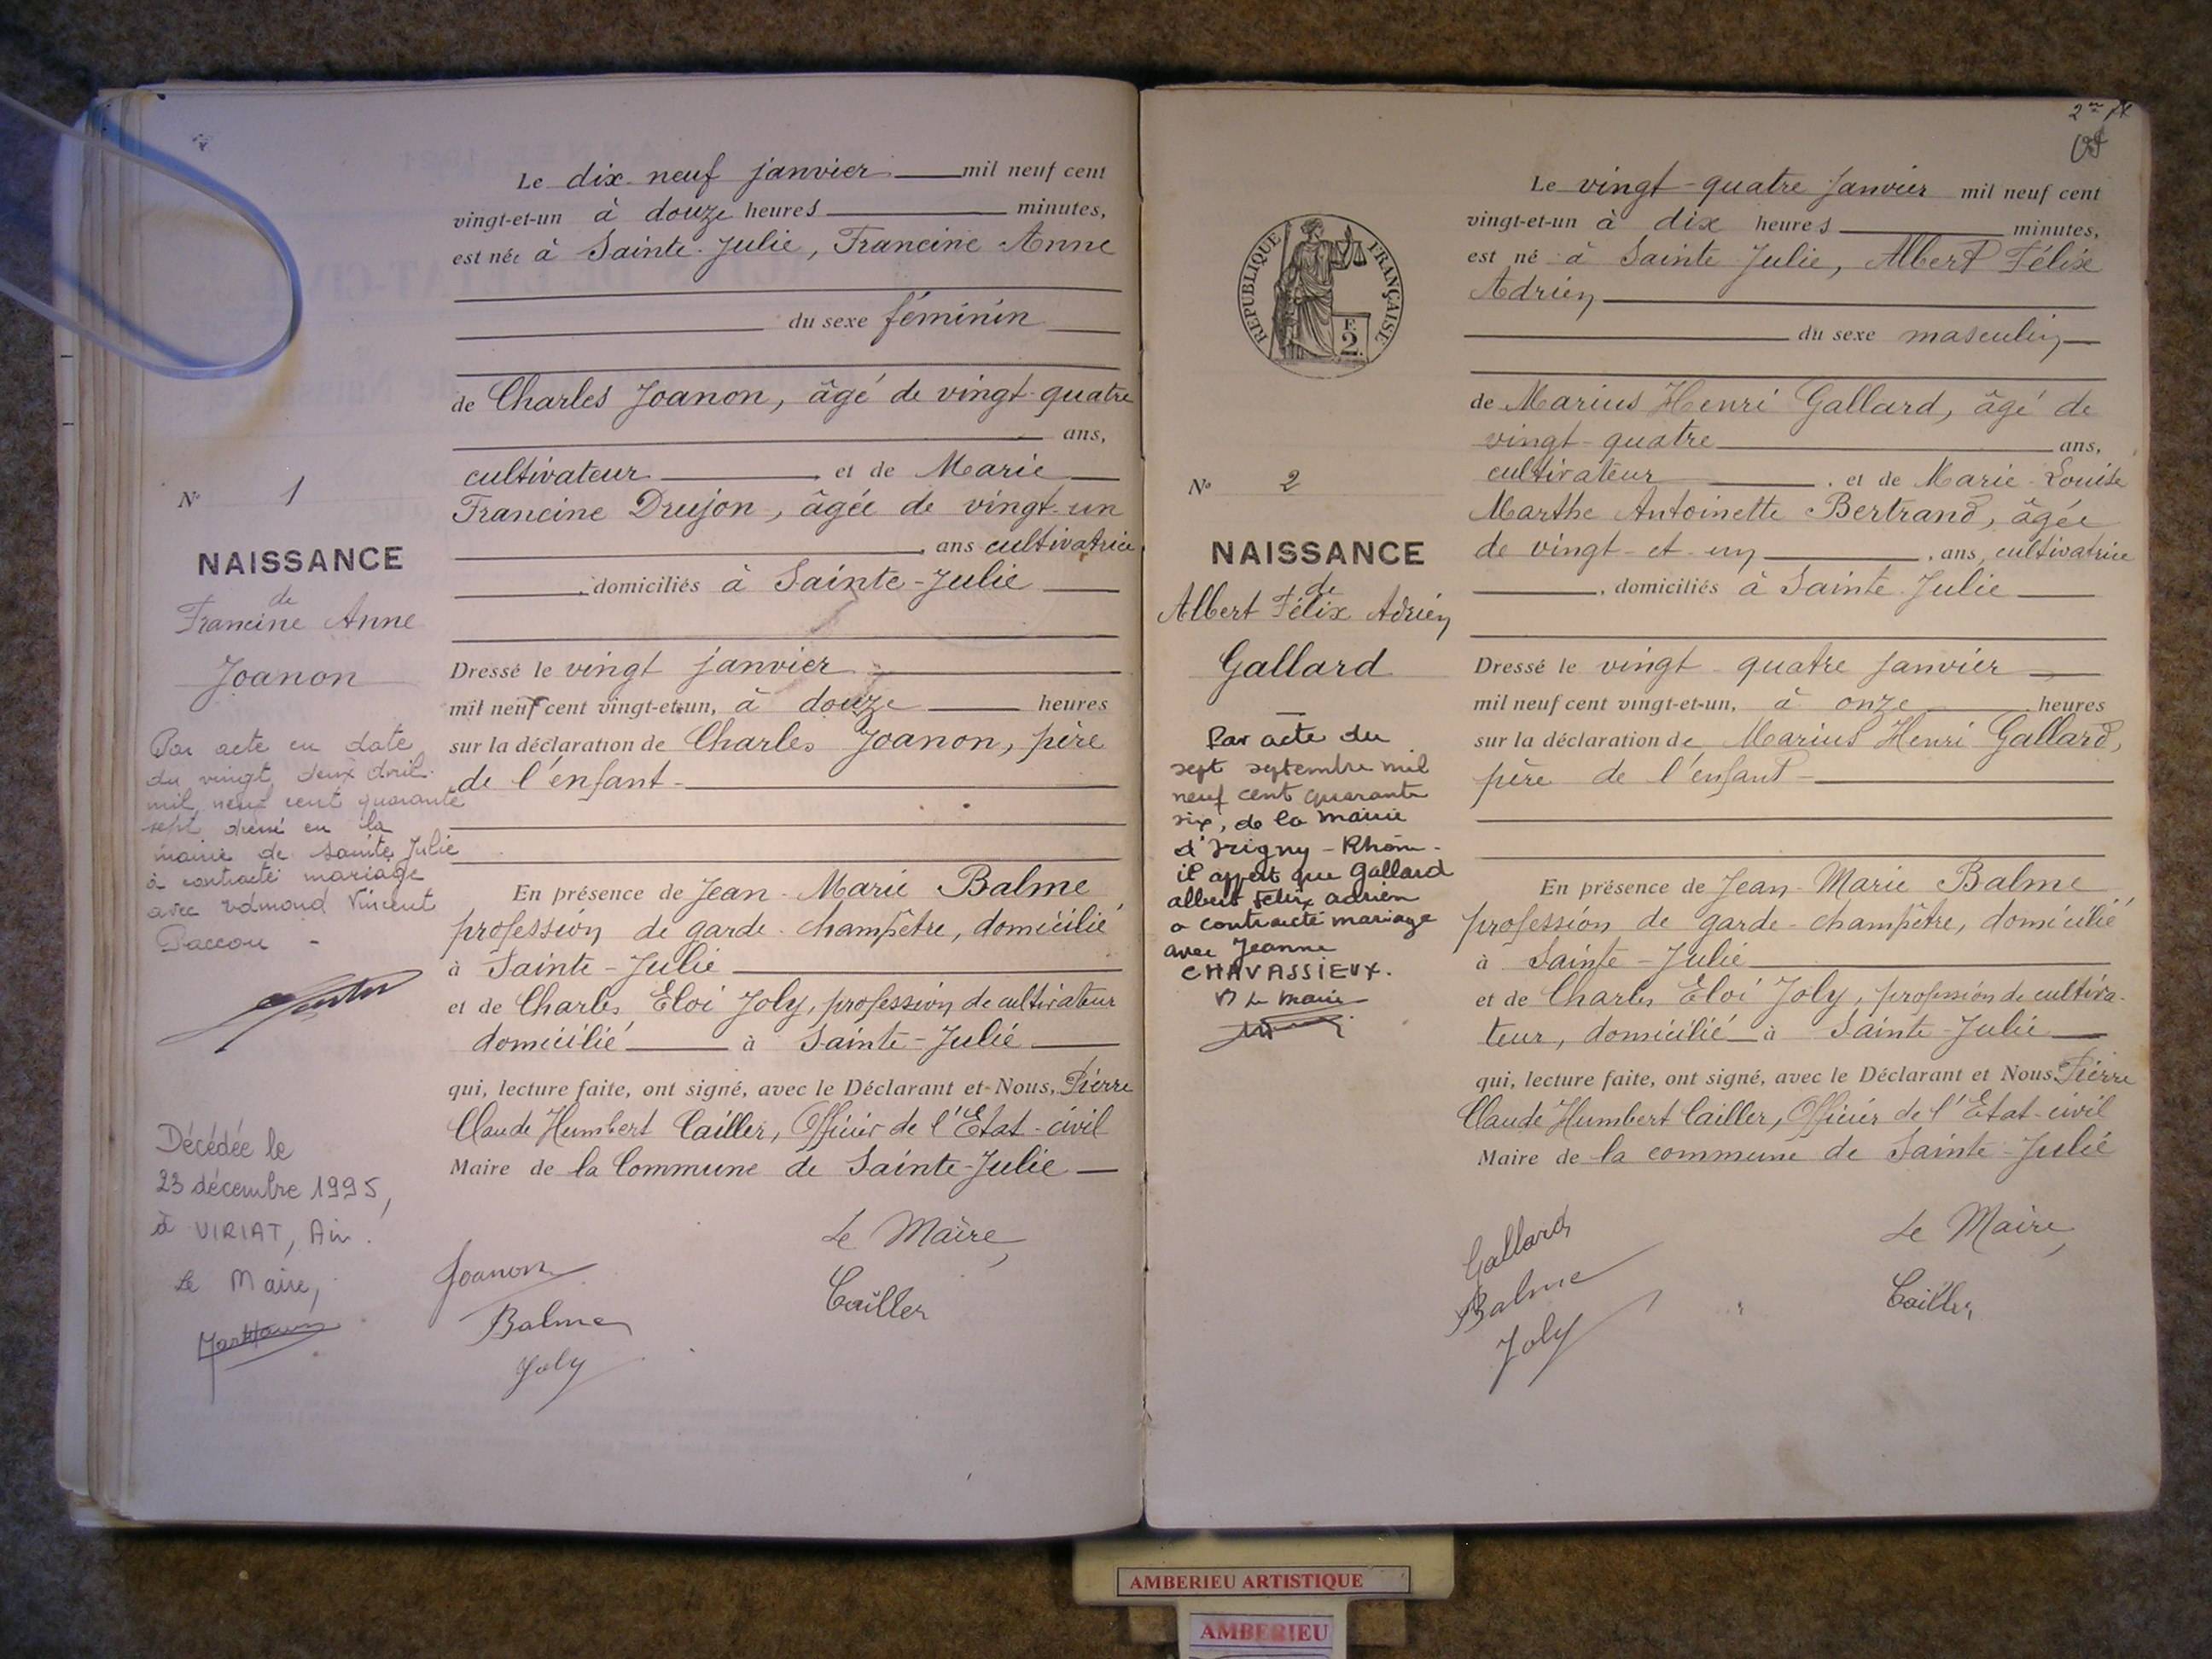 Le dix-neuf janvier mil neuf cent
vingt-et-un à douze heures minutes,
est née à Sainte-Julie, Francine Anne
du sexe féminin
de Charles Joanon, âgé de vingt-quatre
ans,
cultivateur et de Marie
Francine Drujon, âgée de vingt-un
, ans cultivatrice
, domiciliés à Sainte-Julie
Dressé le vingt janvier
mil neuf cent vingt-et-un, à douze heures
sur la déclaration de Charles Joanon, père
de l'enfant
En présence de Jean-Marie Balme
profession de garde-champêtre, domicilié
à Sainte-Julie
et de Charles Eloi Joly, profession de cultivateur
domicilié à Sainte-Julie
qui, lecture faite, ont signé, avec le Déclarant et Nous, Pierre
Claude Humbert Cailler, Officier de l'Etat-civil
Maire de la Commune de Sainte-Julie
Le Maire,
Joanon
Cailler
Balme
Joly
N° 1
NAISSANCE
de
Francine Anne
Joanon
Par acte en date
du vingt deux avril
mil neuf cent quarante
sept dressé en la
mairie de Sainte Julie
à contracté mariage
avec Edmond Vincent
Paccou -
Décédée le
23 décembre 1995,
à VIRIAT, Ain.
Le Maire,
2
RÉPUBLIQUE FRANÇAISE
F.
2.
N° 2
NAISSANCE
de
Albert Félix Adrien
Gallard
Par acte du
sept septembre mil
neuf cent quarante
six, de la mairie
d'Irigny - Rhône -
il appert que Gallard
albert Felix adrien
a contracté mariage
avec Jeanne
CHAVASSIEUX.
Le Maire
Le vingt-quatre janvier mil neuf cent
vingt-et-un à dix heures minutes,
est né à Sainte Julie, Albert Félix
Adrien
du sexe masculin
de Marius Henri Gallard, âgé de
vingt-quatre ans,
cultivateur , et de Marie-Louise
Marthe Antoinette Bertrand, âgée
de vingt-et-un , ans, cultivatrice
, domiciliés à Sainte Julie
Dressé le vingt-quatre janvier
mil neuf cent vingt-et-un, à onze heures
sur la déclaration de Marius Henri Gallard,
père de l'enfant
En présence de Jean-Marie Balme
profession de garde-champêtre, domicilié
à Sainte-Julie
et de Charles Eloi Joly, profession de cultiva-
teur, domicilié à Sainte-Julie
qui, lecture faite, ont signé, avec le Déclarant et Nous Pierre
Claude Humbert Cailler, Officier de l'Etat-civil
Maire de la commune de Sainte-Julie
Le Maire,
Gallard
Balme
Cailler
Joly
AMBERIEU ARTISTIQUE
AMBERIEU